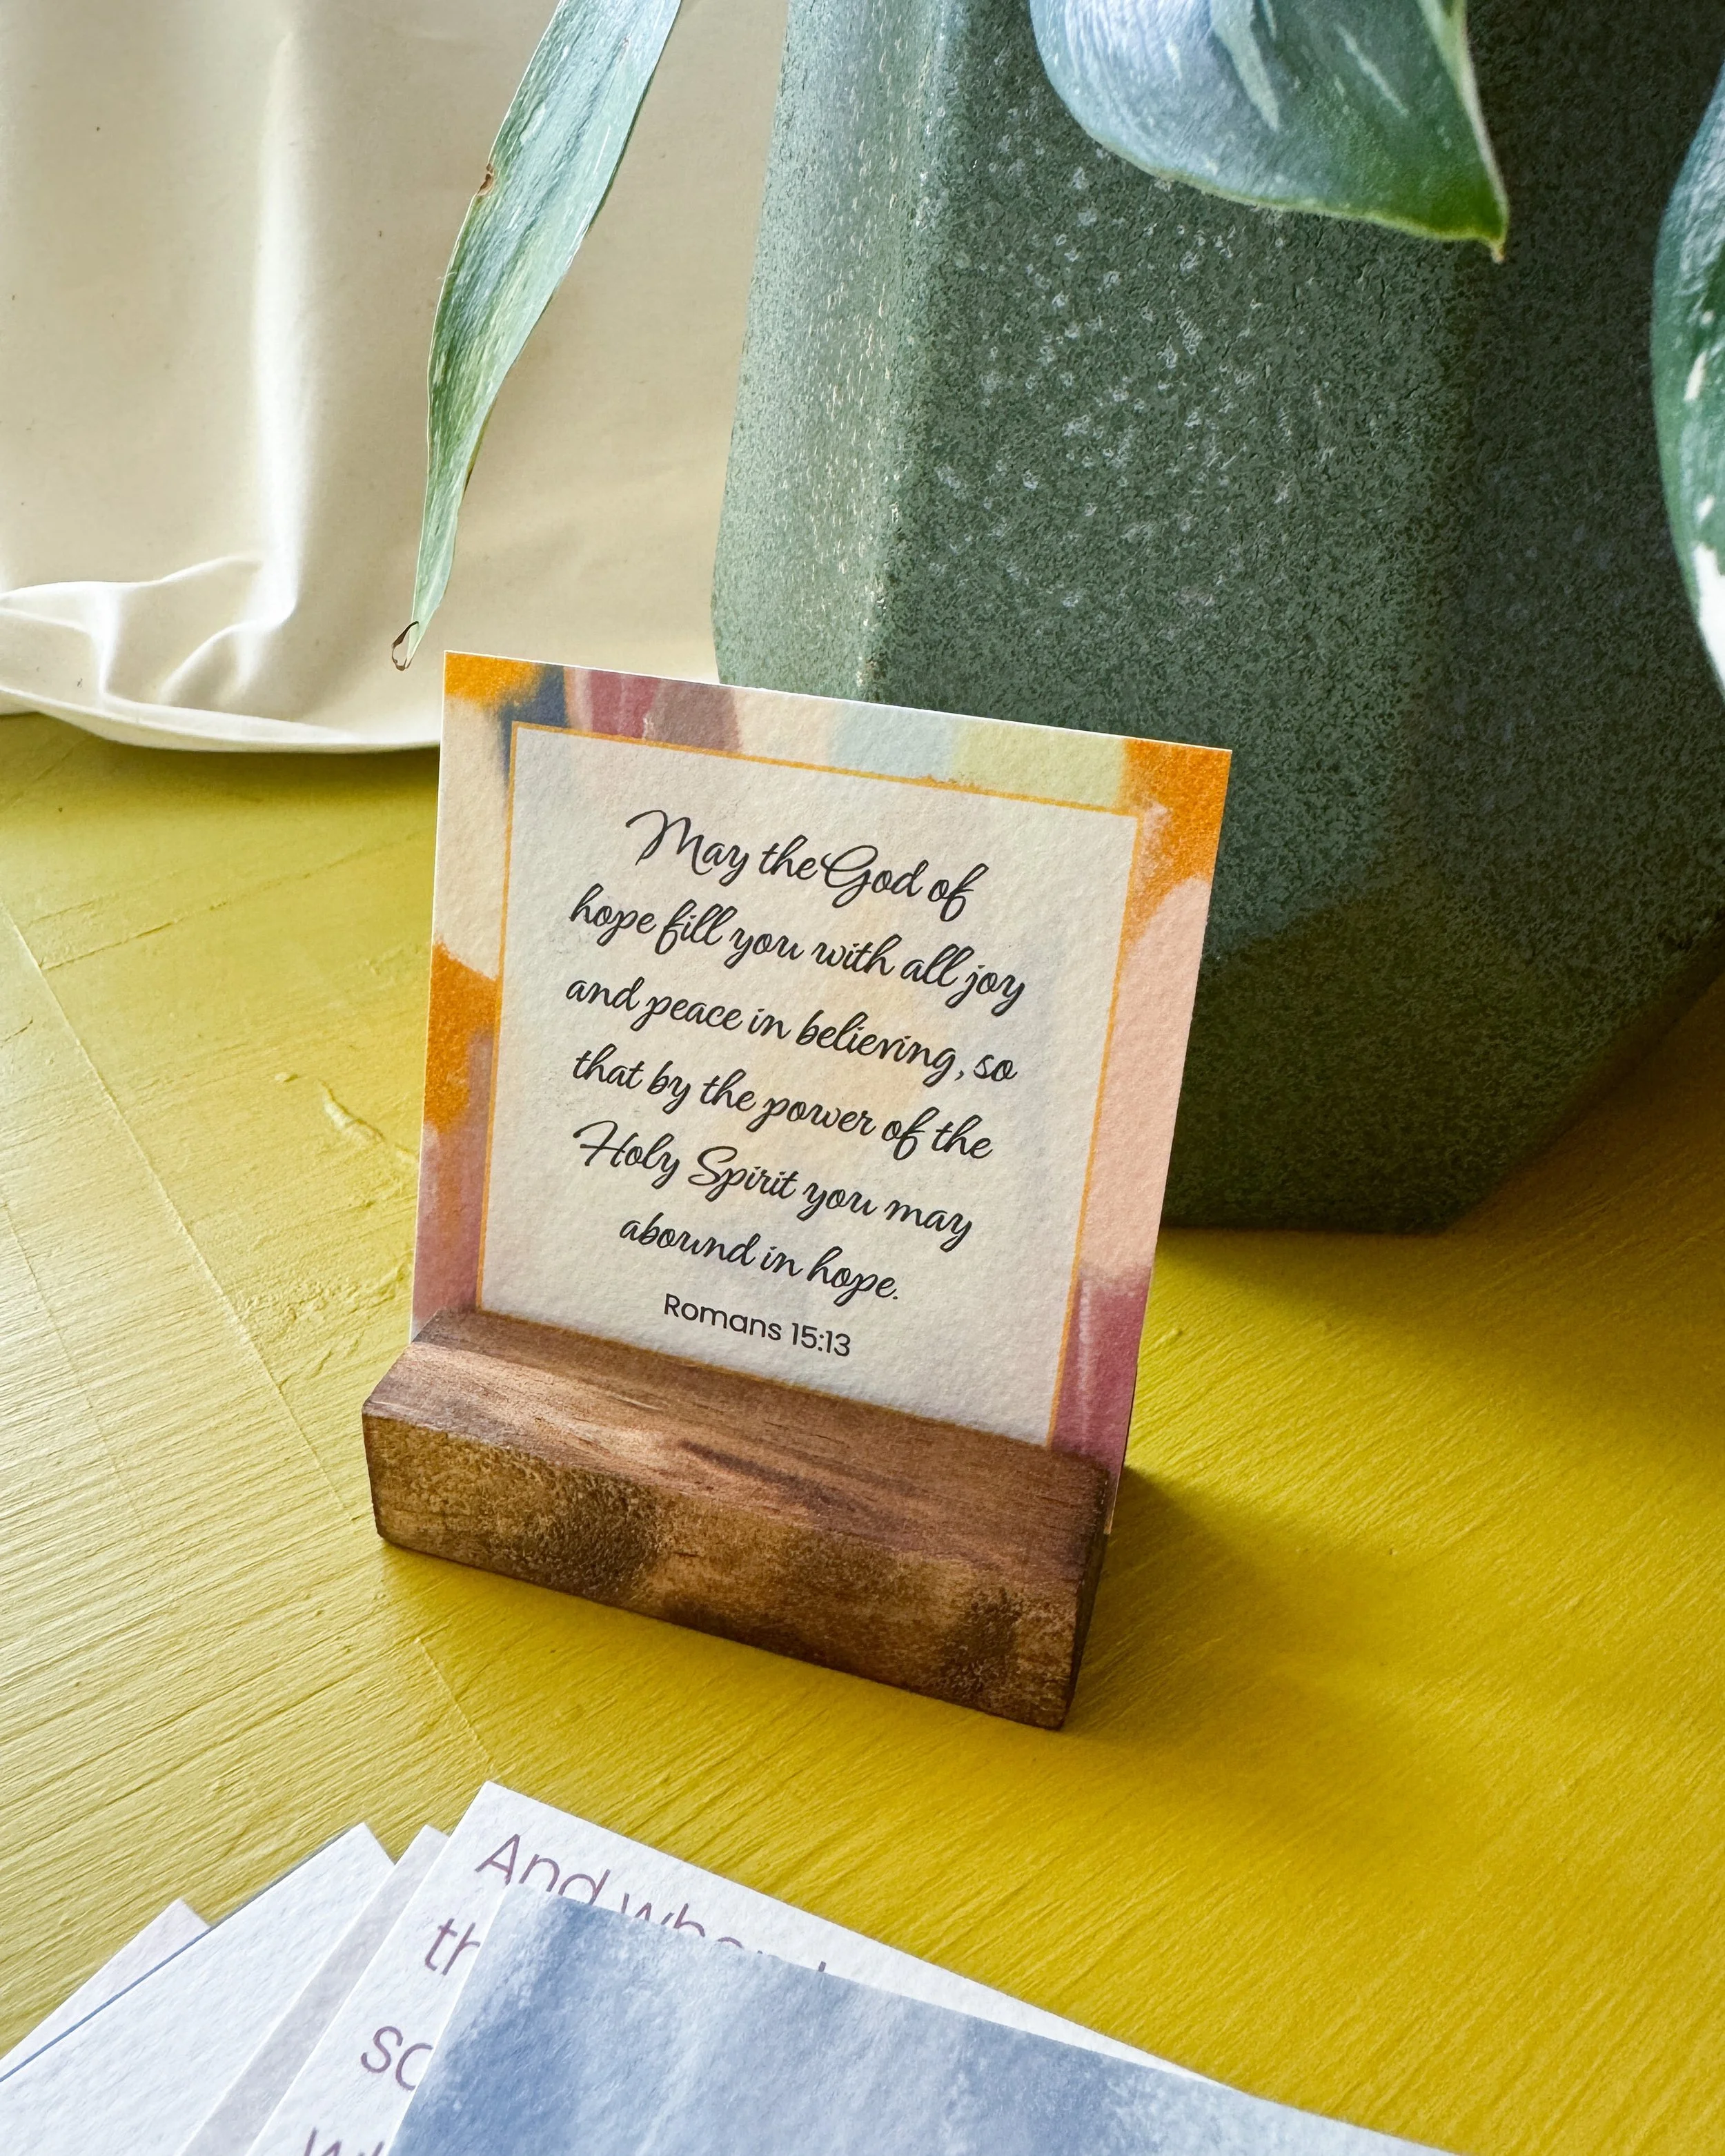 May the God of
hope fill you with all joy
and peace in believing, so
that by the power of the
Holy Spirit you may
abound in hope.
Romans 15:13
And